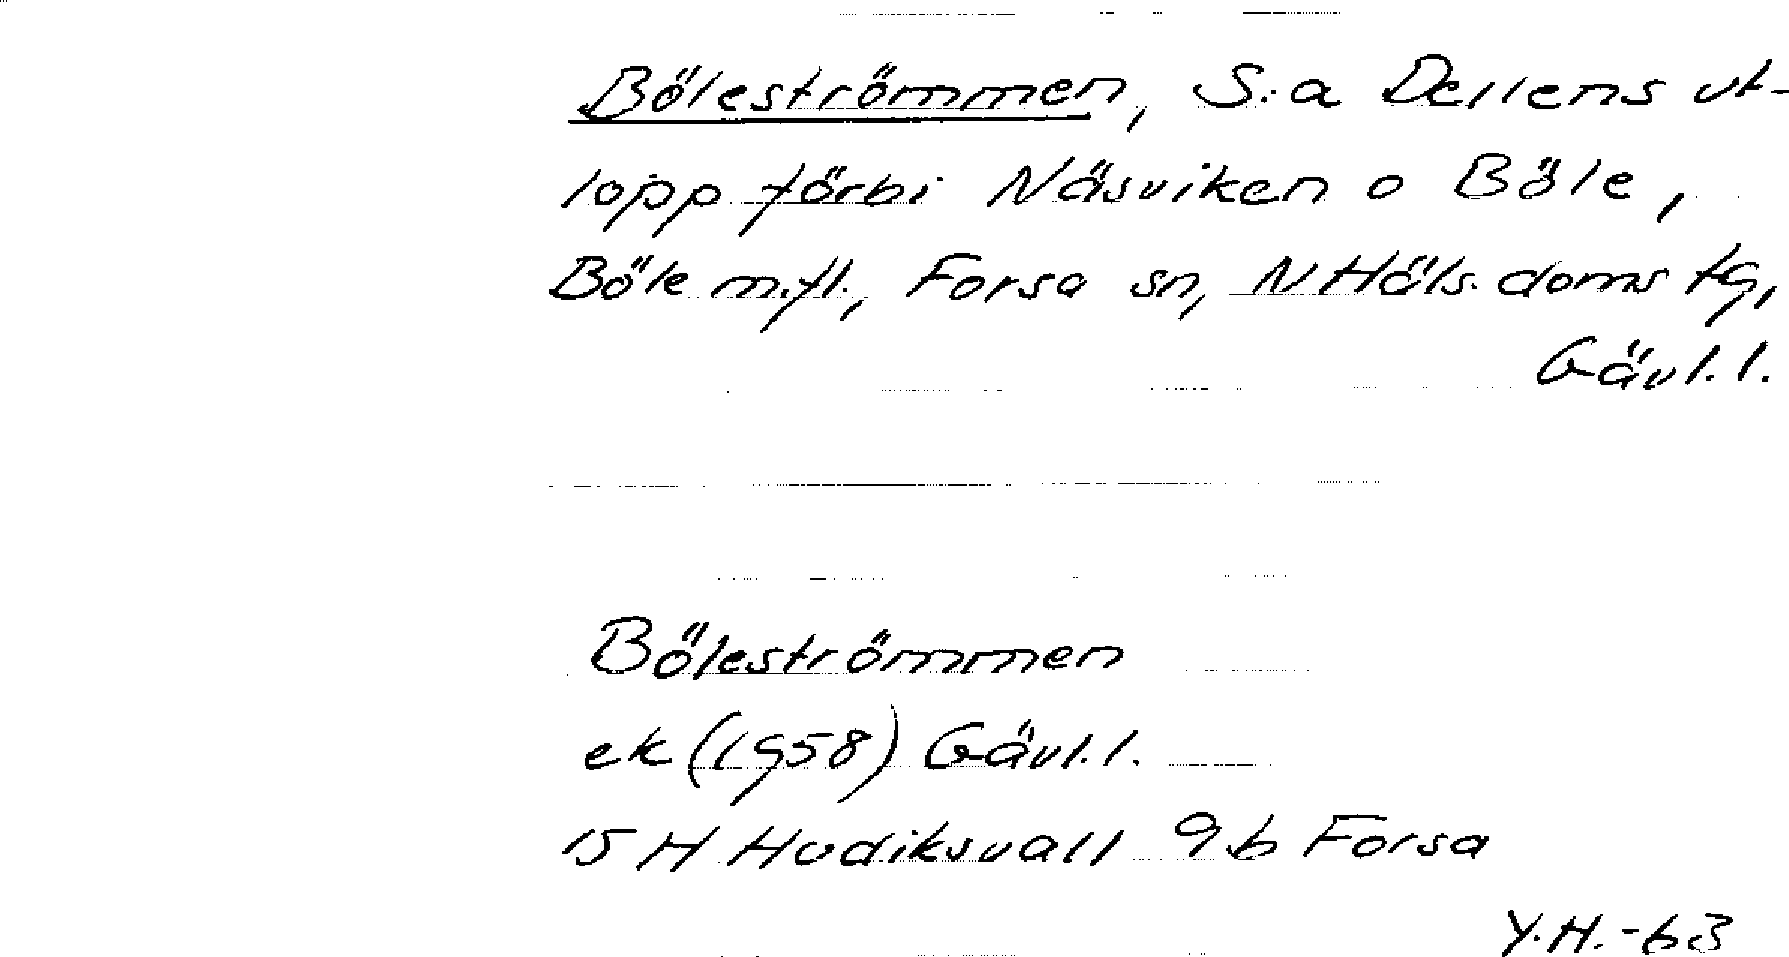 Böleströmmen, S:a Dellens ut-
lopp förbi Näsviken o Böle,
Böle m.fl., Forsa sn, NHäls. doms tg,
Gävl.l.
Böleströmmen
ek (1958) Gävl.l.
15 H Hudiksvall 9b Forsa
Y.H.-63